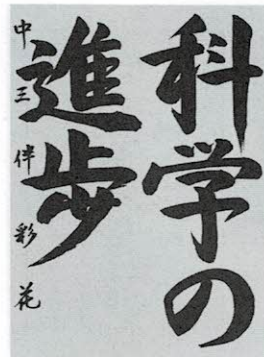 科学の
進歩
中三 伴 彩花